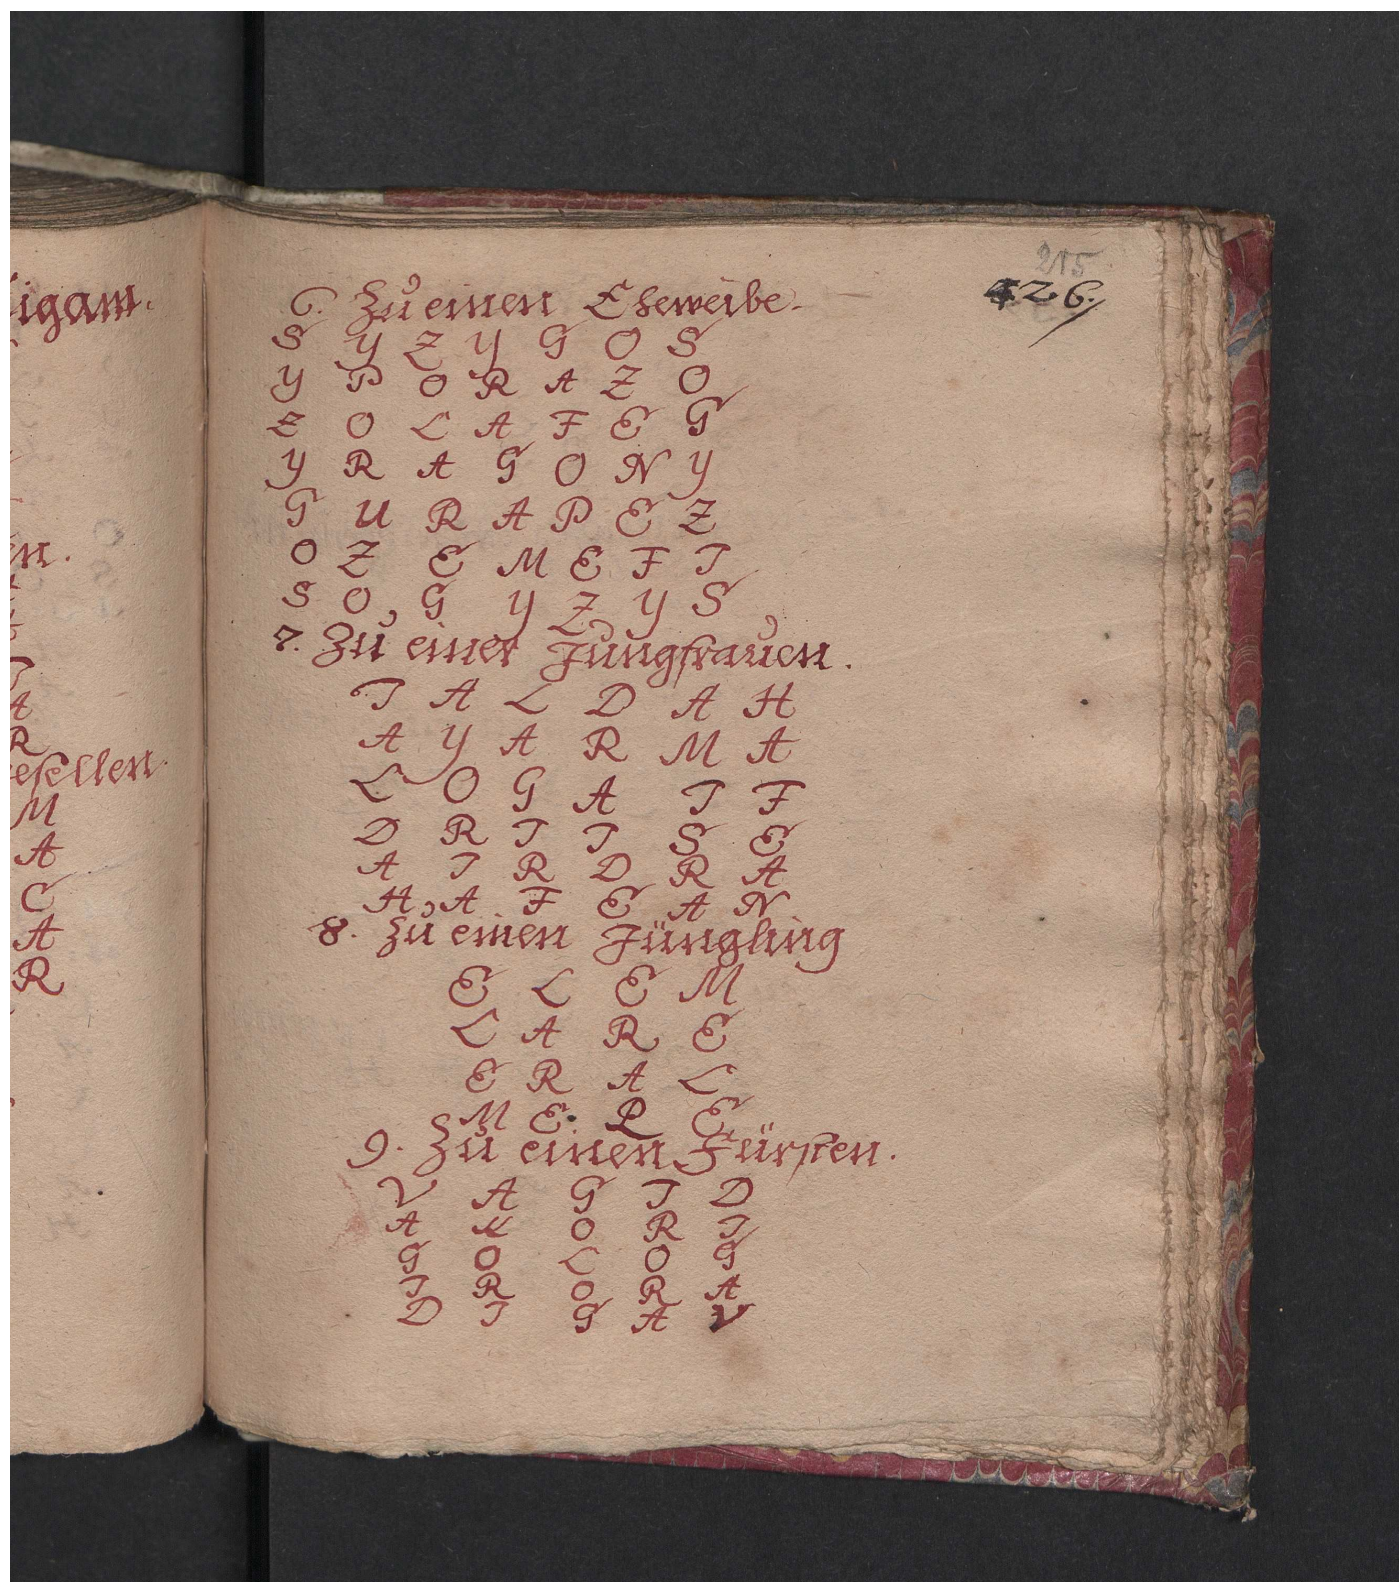 igam.
215
426.
6. Zu einen Eheweibe.
S Y Z Y G O S
Y P O R A Z O
Z O L A F E G
Y R A G O N Y
G U R A P E Z
O Z E M E F I
S O G Y Z Y S
en.
7. Zu einer Jungfrauen.
I A L D A H
A Y A R M A
L O G A I F
D R I I S E
A I R D R A
H A F E A N
A
R
esellen
M
A
C
A
R
8. Zu einen Jüngling
E L E M
L A R E
E R A L
M E L E
9. Zu einen Fürsten.
V A G I D
A M O R I
G O L O G
I R O R A
D I G A V